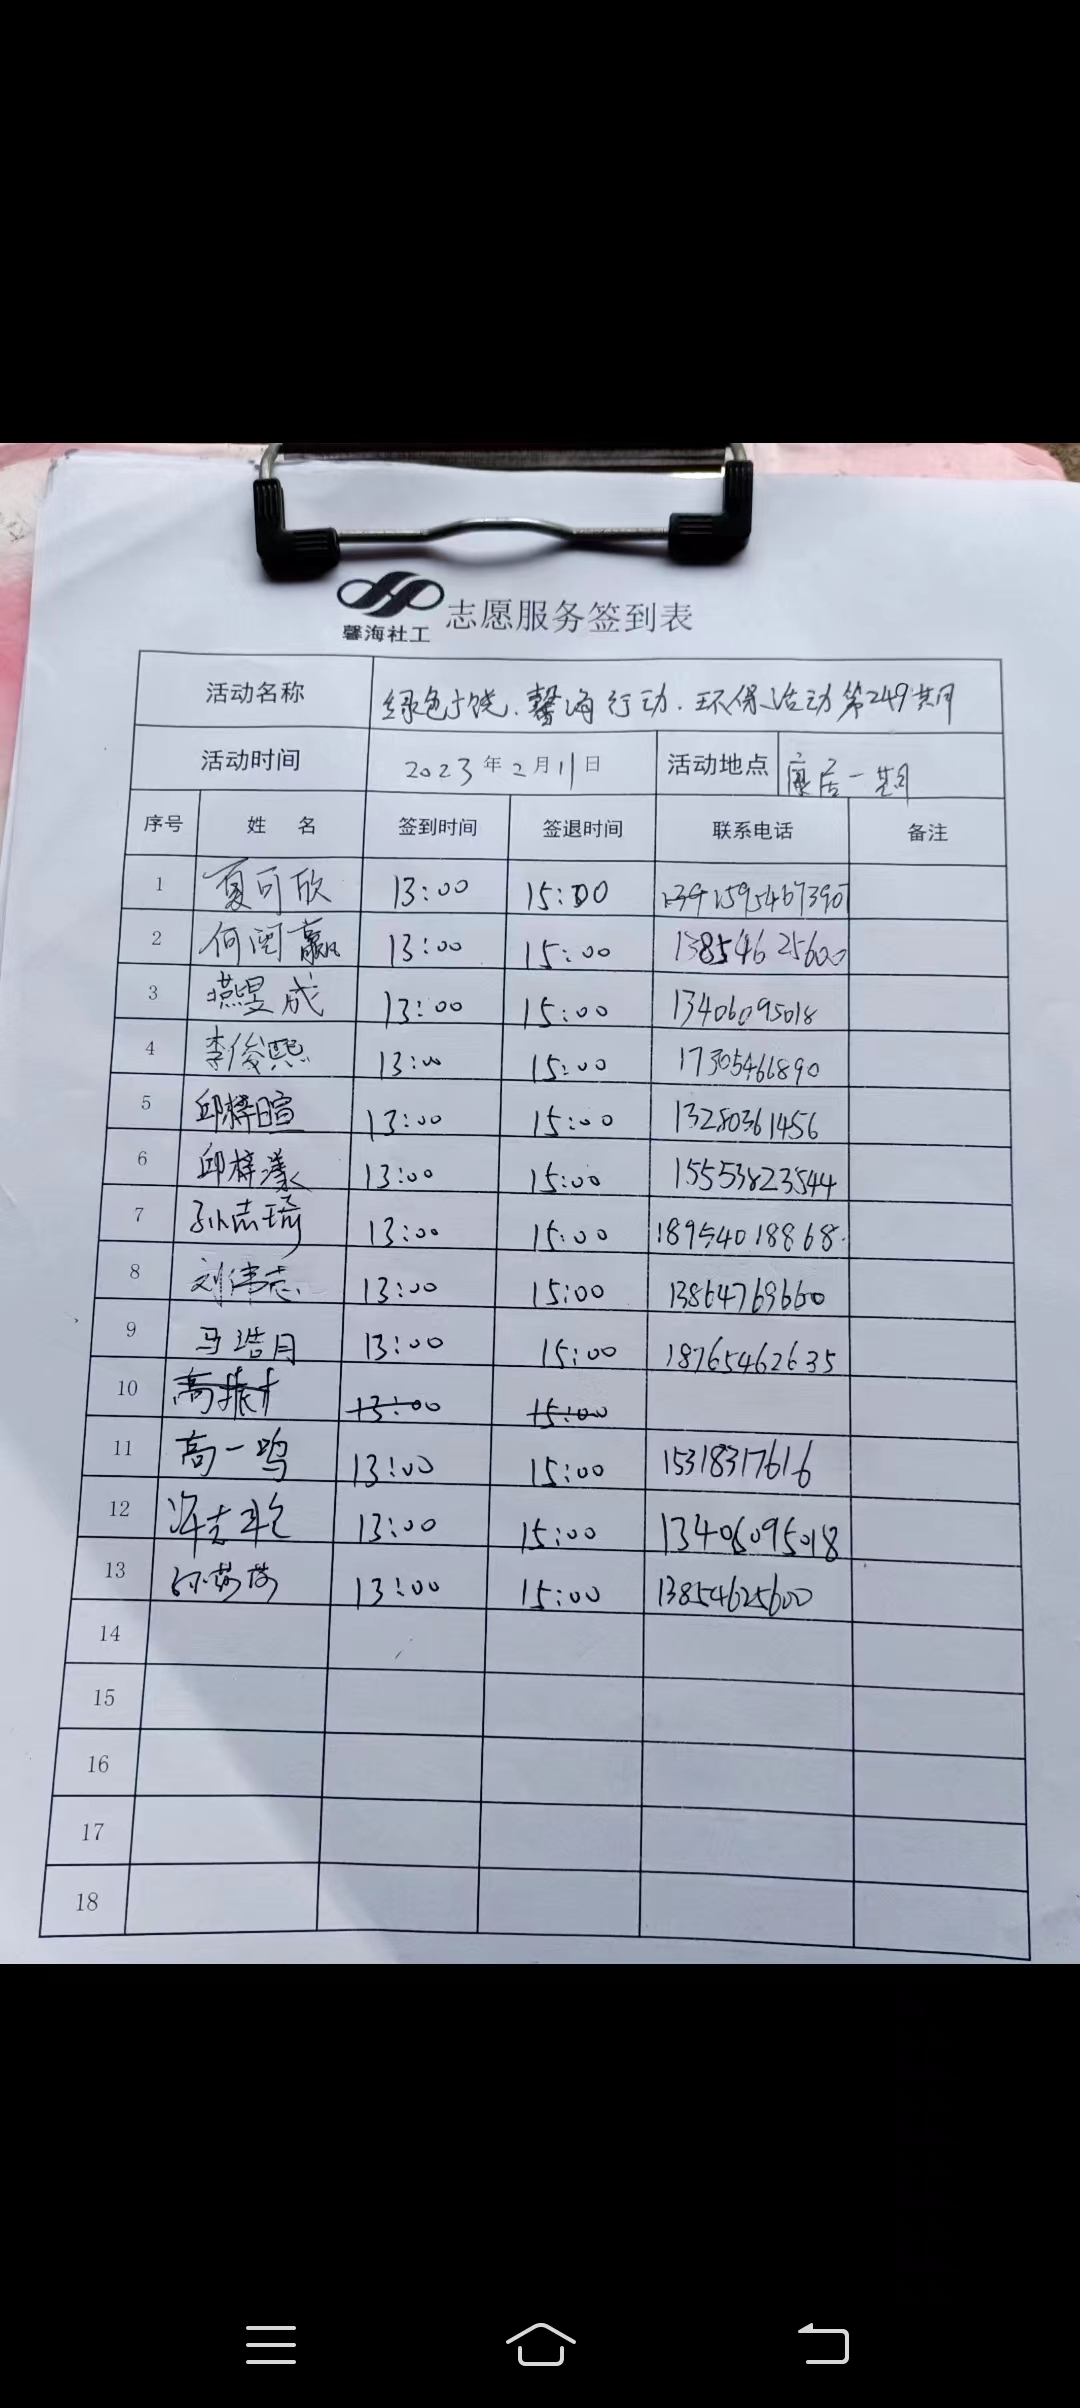 馨海社工 志愿服务签到表
活动名称 绿色广饶.馨海行动.环保活动第249期
活动时间 2023年2月11日 活动地点 康居一期
序号 姓 名 签到时间 签退时间 联系电话 备注
1 夏可欣 13:00 15:00
2 何闰赢 13:00 15:00 13854625600
3 燕旻成 13:00 15:00 13406095018
4 李俊熙 13:00 15:00 17305466890
5 邱梓暄 13:00 15:00 13280361456
6 邱梓漾 13:00 15:00 15553823544
7 孙志琦 13:00 15:00 18954018868
8 刘伟志 13:00 15:00 13864769660
9 马浩月 13:00 15:00 18765462635
10 高振 13:00 15:00
11 高一鸣 13:00 15:00 15318317616
12 13:00 15:00 13406095018
13 13:00 15:00 13854625600
14
15
16
17
18